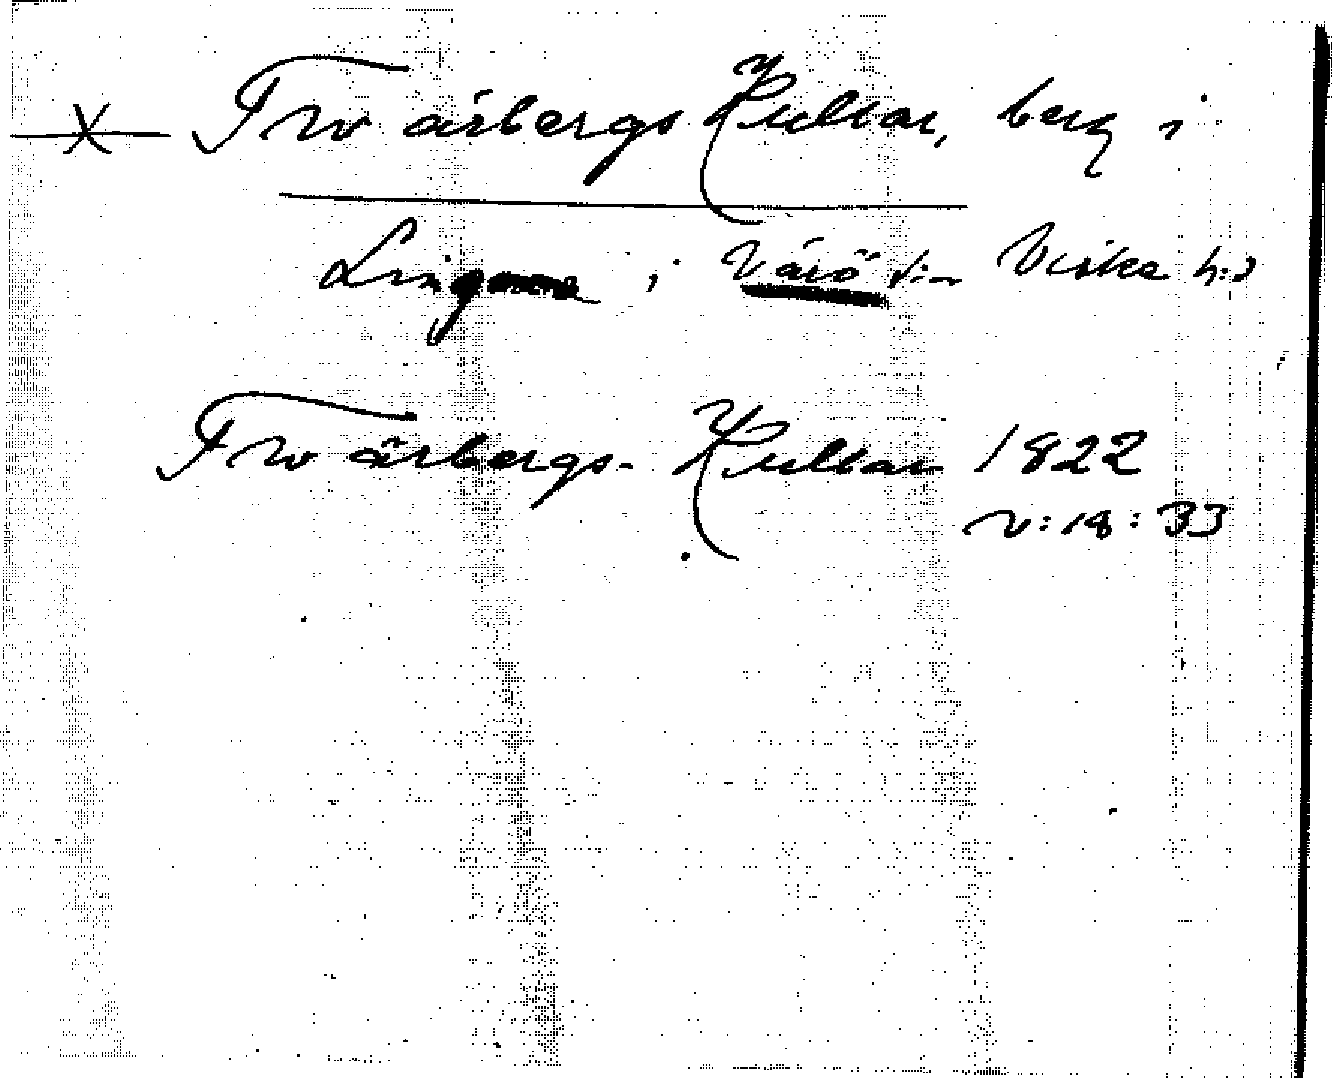 X Twårbergs Kullar, berg i
Lingome i Värö s:n Viske h:d
Twärbergs- Kullar 1822
v: 18: 33